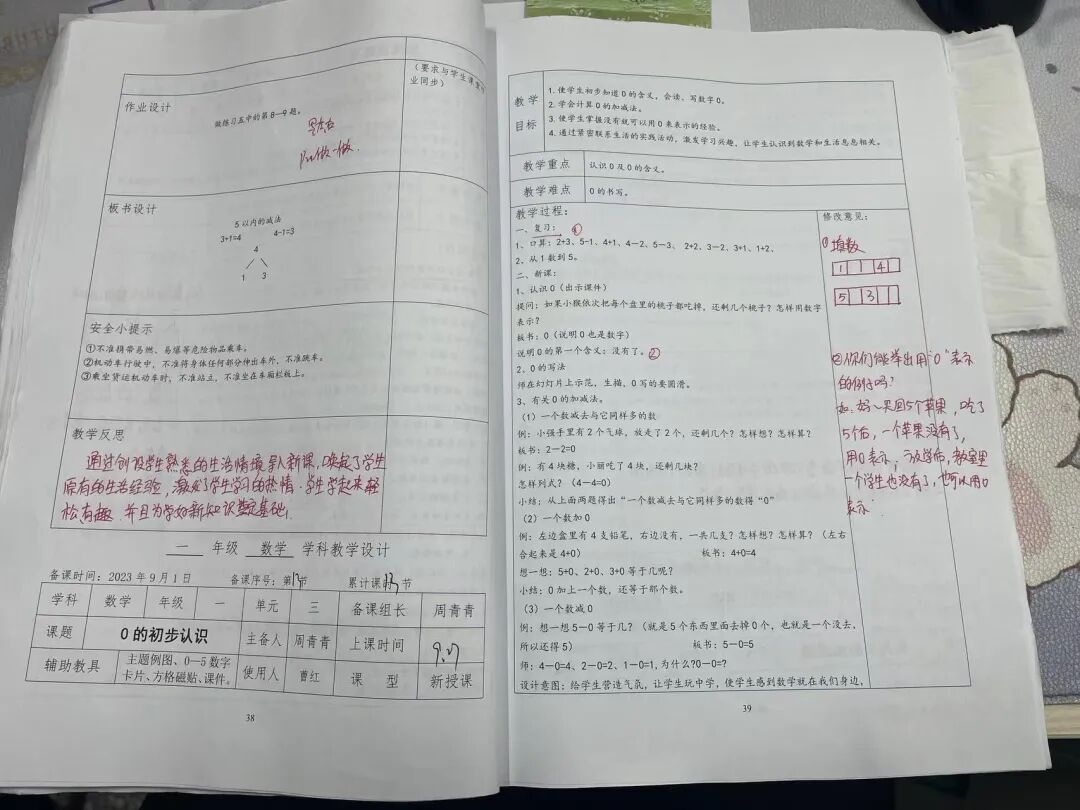 (要求与学生课堂作
业同步)
作业设计
做练习五中的第8—9题。
做一做.
板书设计
5以内的减法
3+1=4 4-1=3
4
1 3
安全小提示
①不准携带易燃、易爆等危险物品乘车。
②机动车行驶中,不准将身体任何部分伸出车外,不准跳车。
③乘坐货运机动车时,不准站立,不准坐在车厢栏板上。
教学反思
通过创设学生熟悉的生活情境导入新课,唤起了学生
原有的生活经验,激发了学生学习的热情.学生学起来轻
松有趣.并且为学好新知识奠定基础.
一 年级 数学 学科教学设计
备课时间:2023年9月1日 备课序号:第13节 累计课时13节
学科 数学 年级 一 单元 三 备课组长 周青青
课题 0的初步认识 主备人 周青青 上课时间 9.27
辅助教具 主题例图、0—5数字
卡片、方格磁贴、课件。 使用人 曹红 课 型 新授课
38
教学
目标
1.使学生初步知道0的含义,会读、写数字0。
2.学会计算0的加减法。
3.使学生掌握没有就可以用0来表示的经验。
4.通过紧密联系生活的实践活动,激发学习兴趣,让学生认识到数学和生活息息相关。
教学重点 认识0及0的含义。
教学难点 0的书写。
教学过程:
一、复习: ①
1、口算:2+3、5-1、4+1、4—2、5—3、 2+2、3—2、3+1、1+2、
2、从1数到5。
二、新课:
1、认识0(出示课件)
提问:如果小猴依次把每个盘里的桃子都吃掉,还剩几个桃子?怎样用数字
表示?
板书:0(说明0也是数字)
说明0的第一个含义:没有了。②
2、0的写法
师在幻灯片上示范,生描,0写的要圆滑。
3、有关0的加减法。
(1)一个数减去与它同样多的数
例:小强手里有2个气球,放走了2个,还剩几个?怎样想?怎样算?
板书:2—2=0
例:有4块糖,小丽吃了4块,还剩几块?
怎样列式?(4—4=0)
小结:从上面两题得出“一个数减去与它同样多的数得“0”
(2)一个数加0
例:左边盒里有4支铅笔,右边没有,一共几支?怎样想?怎样算?(左右
合起来是4+0) 板书:4+0=4
想一想:5+0、2+0、3+0等于几呢?
小结:0加上一个数,还等于那个数。
(3)一个数减0
例:想一想5—0等于几?(就是5个东西里面去掉0个,也就是一个没去,
所以还得5) 板书:5—0=5
师:4—0=4、2—0=2、1—0=1,为什么?0—0=?
设计意图:给学生营造气氛,让学生玩中学,使学生感到数学就在我们身边,
修改意见:
① 填数
1 1 4
5 3
②你们能举出用“0”表示
的例子吗?
如:妈妈买回5个苹果,吃了
5个后,一个苹果没有了,
用0表示,放学后,教室里
一个学生也没有了,也可以用0
表示.
39